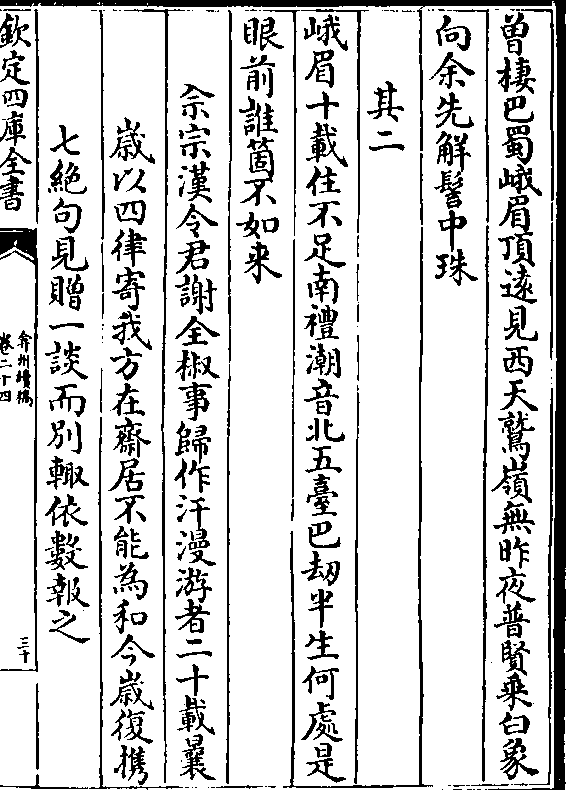 曽棲巴蜀峨眉頂遠見西天鷲嶺無昨夜普賢乗白象
向余先解髻中珠
其二
峨眉十載住不足南禮潮音北五臺巴刼半生何處是
眼前誰箇不如来
余宗漢令君謝全椒事歸作汗漫游者二十載曩
歳以四律寄我方在齋居不能為和今歳復携
七絶句見贈一談而别輙依數報之
欽定四庫全書
弇州續稿
卷二十四
三十